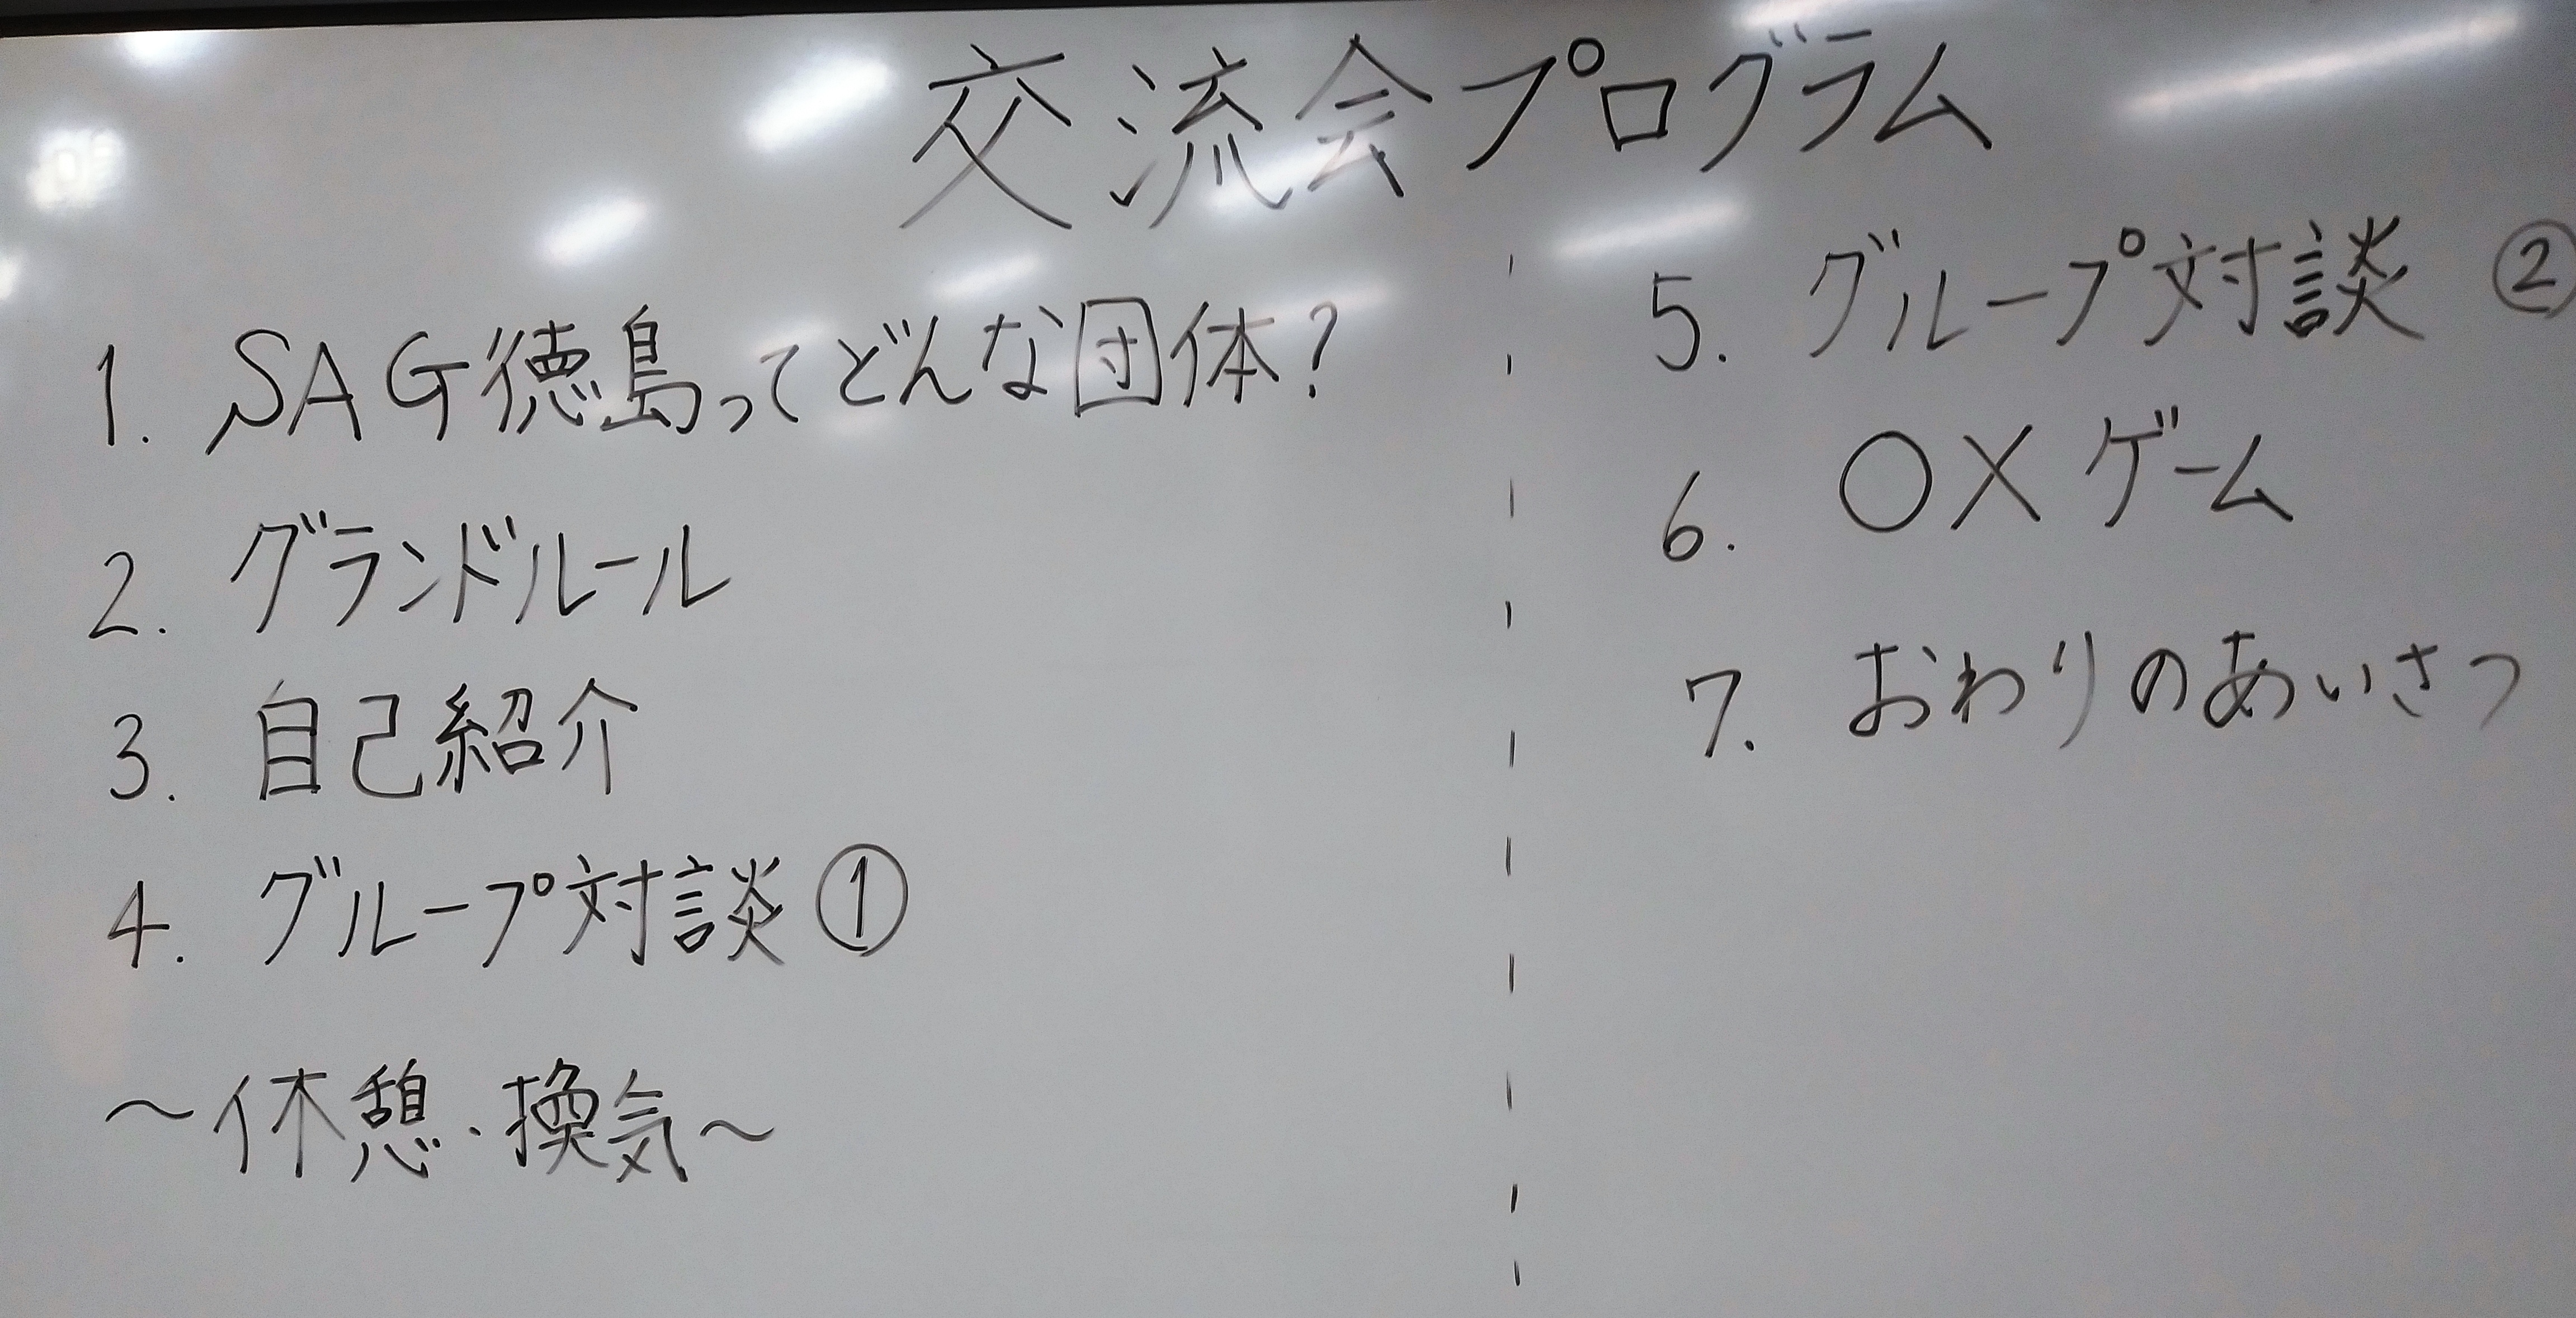 交流会プログラム
1. SAG徳島ってどんな団体?
2. グランドルール
3. 自己紹介
4. グループ対談 ①
〜休憩・換気〜
5. グループ対談 ②
6. ○×ゲーム
7. おわりのあいさつ